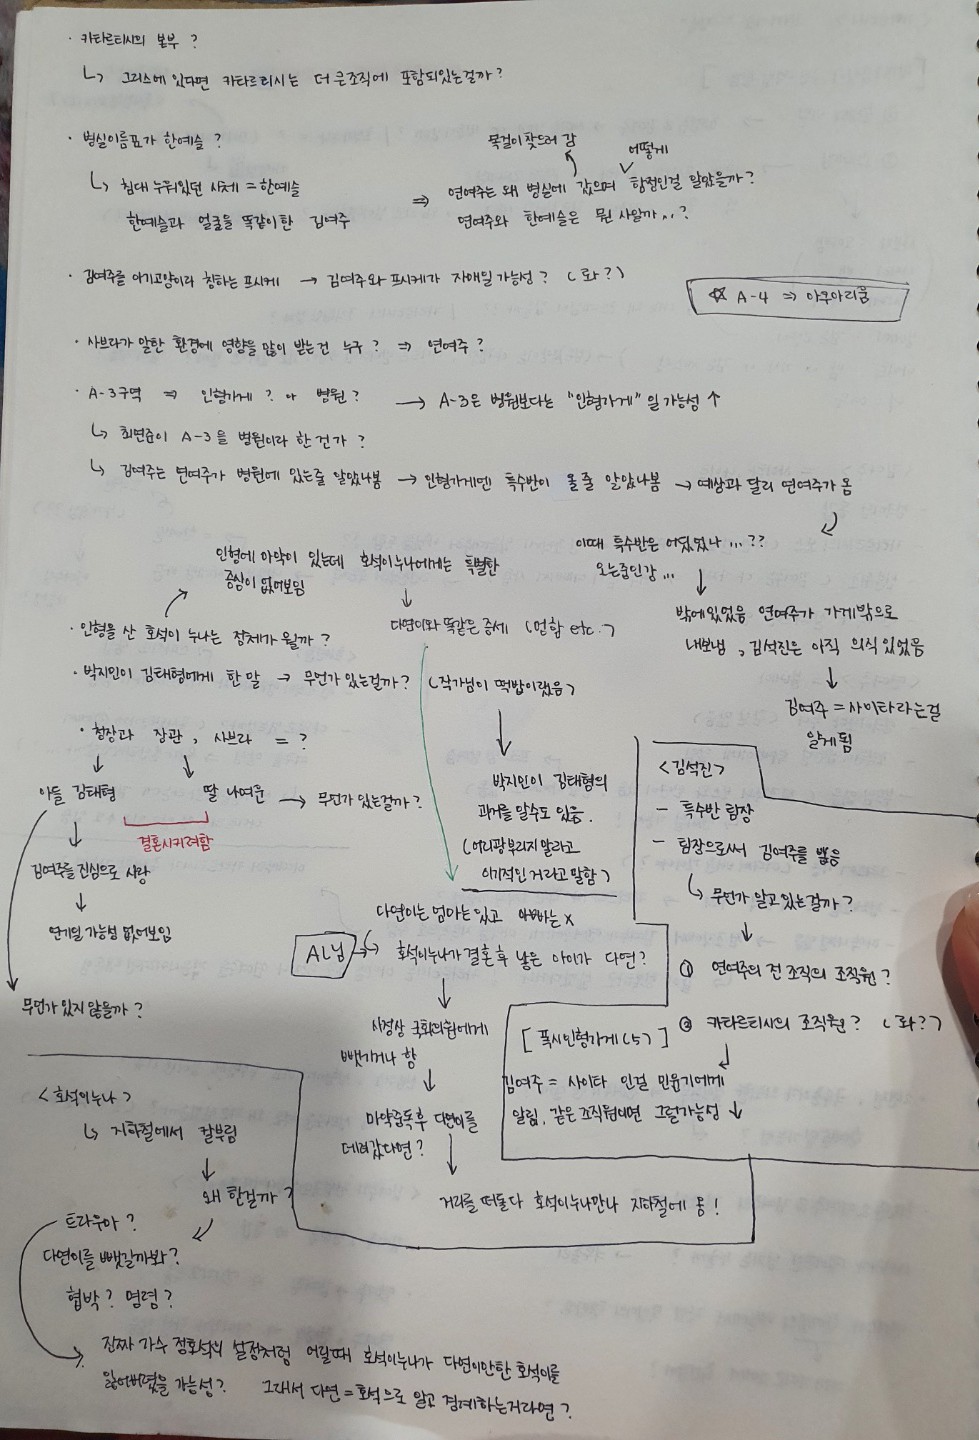 · 카타르티시의 본부 ?
↳ 그리스에 있다면 카타르티시는 더 큰조직에 포함되있는걸까?
· 병실이름표가 한예슬 ?
목걸이 찾으러 감
어떻게
↳ 침대 누워있던 시체 = 한예슬
한예슬과 얼굴을 똑같이한 김여주
⇒ 연여주는 왜 병실에 갔으며 함정인걸 알았을까?
연여주와 한예슬은 뭔 사일까...?
· 김여주를 아기고양이라 칭하는 프시케 → 김여주와 프시케가 자매일 가능성? (롸?)
☆ A-4 ⇒ 아쿠아리움
· 사브라가 말한 환경에 영향을 많이 받는건 누구? ⇒ 연여주?
· A-3구역 ⇒ 인형가게? or 병원? → A-3은 병원보다는 "인형가게" 일 가능성 ↑
↳ 최연준이 A-3을 병원이라 한건가?
↳ 김여주는 연여주가 병원에 있는줄 알았나봄 → 인형가게엔 특수반이 올 줄 알았나봄 → 예상과 달리 연여주가 옴
이때 특수반은 어딨었나...??
오는중인감...
밖에있었음 연여주가 가게밖으로
내보냄, 김석진은 아직 의식 있었음
김여주 = 사이타라는걸
알게됨
인형에 마약이 있는데 호석이누나에게는 특별한
증상이 없어보임
다연이와 똑같은 증세 (멍함 etc.)
· 인형을 산 호석이 누나는 정체가 뭘까?
· 박지민이 김태형에게 한 말 → 무언가 있는걸까? (작가님이 떡밥이랬음)
박지민이 김태형의
과거를 알수도 있음.
(어리광부리지 말라고
이기적인 거라고 말함)
· 청장과 장관, 사브라 = ?
아들 김태형
딸 나여운 → 무언가 있는걸까?
결혼시키려함
김여주를 진심으로 사랑
연기일 가능성 없어보임
무언가 있지 않을까?
<김석진>
- 특수반 팀장
- 팀장으로써 김여주를 받음
↳ 무언가 알고 있는걸까?
① 연여주의 전 조직의 조직원?
② 카타르티시의 조직원? (롸?)
[ 픽시인형가게(5) ]
김여주 = 사이타 인걸 민윤기에게
알림, 같은 조직원이면 그럴가능성 ↓
다연이는 엄마는 있고 아빠는 x
AL님 → 호석이누나가 결혼 후 낳은 아이가 다연?
사정상 국회의원에게
뺏기거나 함
마약중독후 다연이를
데려갔다면?
거리를 떠돌다 호석이누나만나 지하철에 옴!
<호석이누나>
↳ 지하철에서 칼부림
왜 한걸까?
트라우마?
다연이를 뺏길까봐?
협박? 명령?
진짜 가수 정호석씨 설정처럼 어릴때 호석이누나가 다연이만한 호석이를
잃어버렸을 가능성? 그래서 다연 = 호석으로 알고 경계하는거라면?